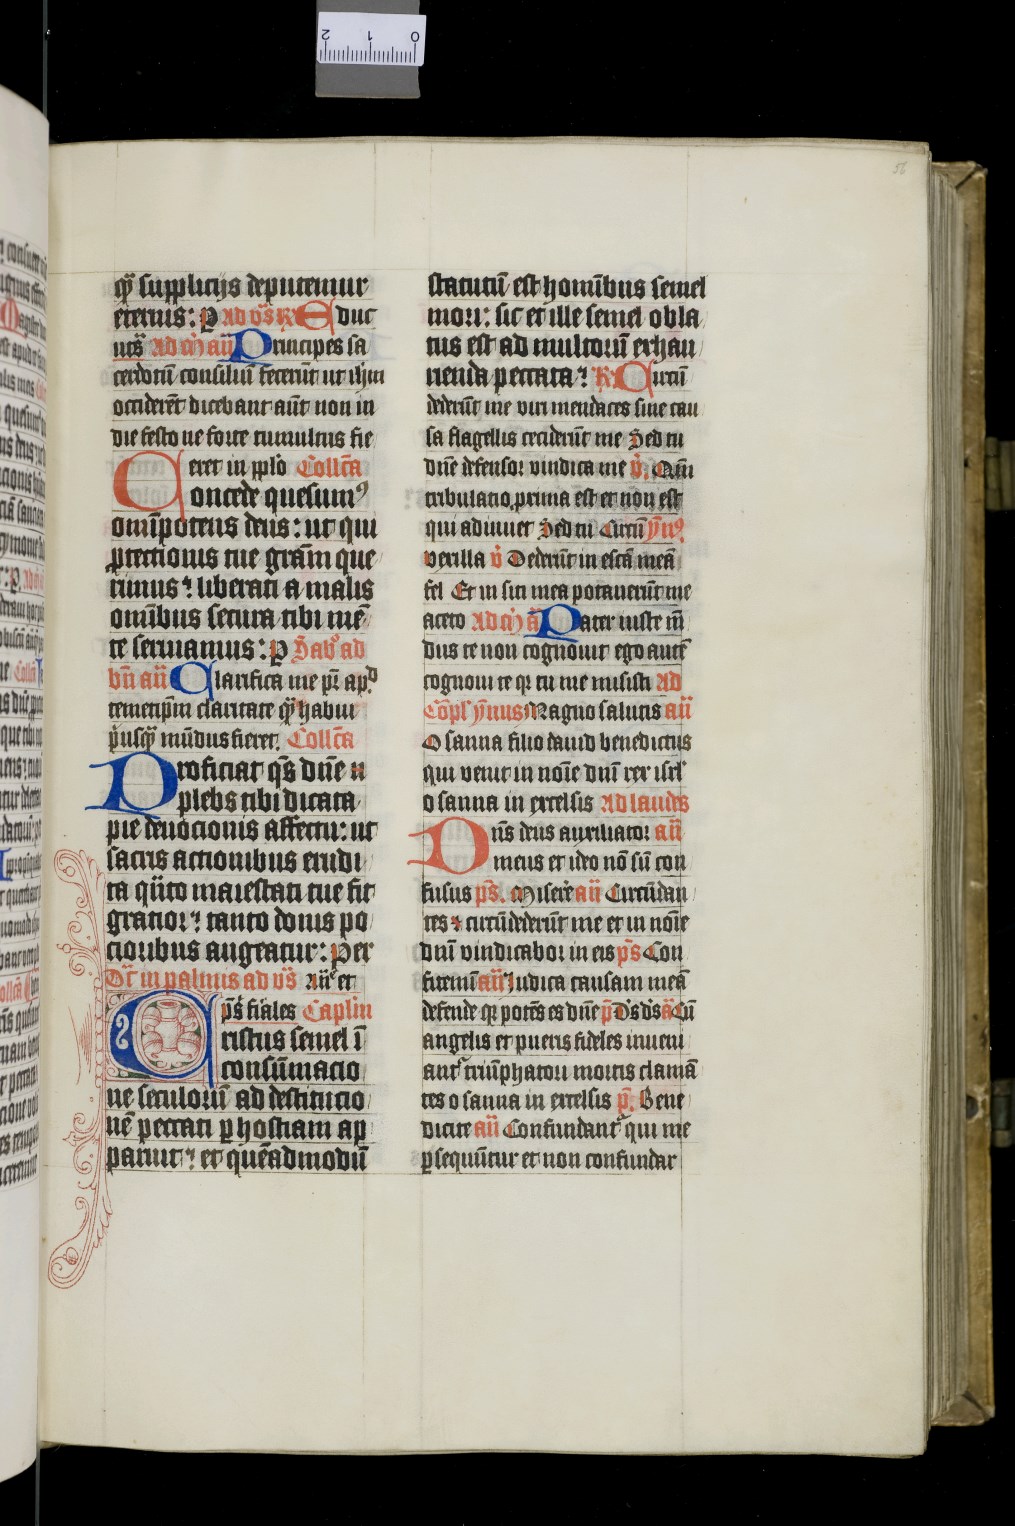 56
qꝫ supplicijs deputemur
eternis: ꝑ ad vs̄ R Educ
nos Ad m̄ an̄ Principes sa
cerdotū consiliū fecerūt ut ihm
occiderēt dicebant aūt non in
die festo ne forte tumultus fie
ret in pplo Collcā
Concede quesumꝰ
omīpotens deus: ut qui
ꝓtectionis tue gratiam que
rimus: liberati a malis
omībus secura tibi mē
te seruiamus: ꝑ Sabbo ad
bn̄ an̄ Clarifica me pr̄ apd
temetipm̄ claritate qm̄ habui
priusqꝫ mūdus fieret. Collcā
Proficiat qs̄ dn̄e
plebs tibi dicata
pie deuocionis affectu: ut
sacris actionibus erudi
ta quāto maiestati tue fit
gratior: tanto donis po
cioribus augeatur: Per
Dn̄ica in palmis ad vs̄ an̄ et
ps̄ feriales Caplm
Cristus semel ī
consūmacio
ne seculorū ad destitucio
nē peccati ꝑ hostiam ap
paruit: et quēadmodū
statutū est homībus semel
mori: sic et ille semel obla
tus est ad multorū exhau
rienda peccata: R Circū
dederūt me viri mendaces sine cau
sa flagellis ceciderūt me Sed tu
dn̄e defensor vindica me v̄. Qm̄
tribulatio ꝓxima est et non est
qui adiuuet Sed tu Circū ymꝰ
vexilla v̄ Dederūt in escā meā
fel Et in siti mea potauerūt me
aceto Ad m̄ a Pater iuste mū
dus te non cognouit ego autē
cognoui te qꝛ tu me misisti Ad
Cōpl ymus Magno salutis an̄
Osanna filio dauid benedictus
qui venit in noīe dn̄i rex isrl
osanna in excelsis Ad laudes
Dn̄s deus auxiliator an̄
meus et ideo nō sū con
fusus ps̄. Misere an̄ Circūdan
tes circūdederūt me et in noīe
dn̄i vindicabor in eis ps̄ Con
fitemī an̄ Iudica causam meā
defende qꝛ potēs es dn̄e p̄ Ds̄ ds̄ a Cū
angelis et pueris fideles inueni
ant triūphatori mortis clamā
tes osanna in excelsis p̄. Bene
dicite an̄ Confundant qui me
ꝑsequūtur et non confundar